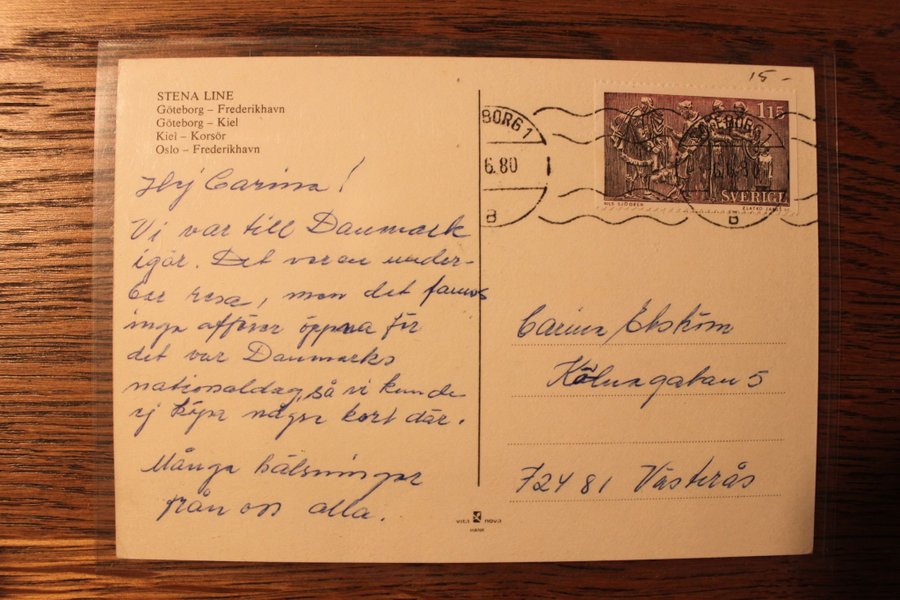 STENA LINE
Göteborg – Frederikhavn
Göteborg – Kiel
Kiel – Korsör
Oslo – Frederikhavn
Hej Carina!
Vi var till Danmark
igår. Det var en under-
bar resa, men det fanns
inga affärer öppna för
det var Danmarks
nationaldag, så vi kunde
ej köpa några kort där.
Många hälsningar
från oss alla.
15 -
BORG 1
6.80
B
GÖTEBORG 1
6.80
B
1 15
SVERIGE
NILS SJÖGREN
Carina Ekström
gatan 5
724 81 Västerås
vita nova